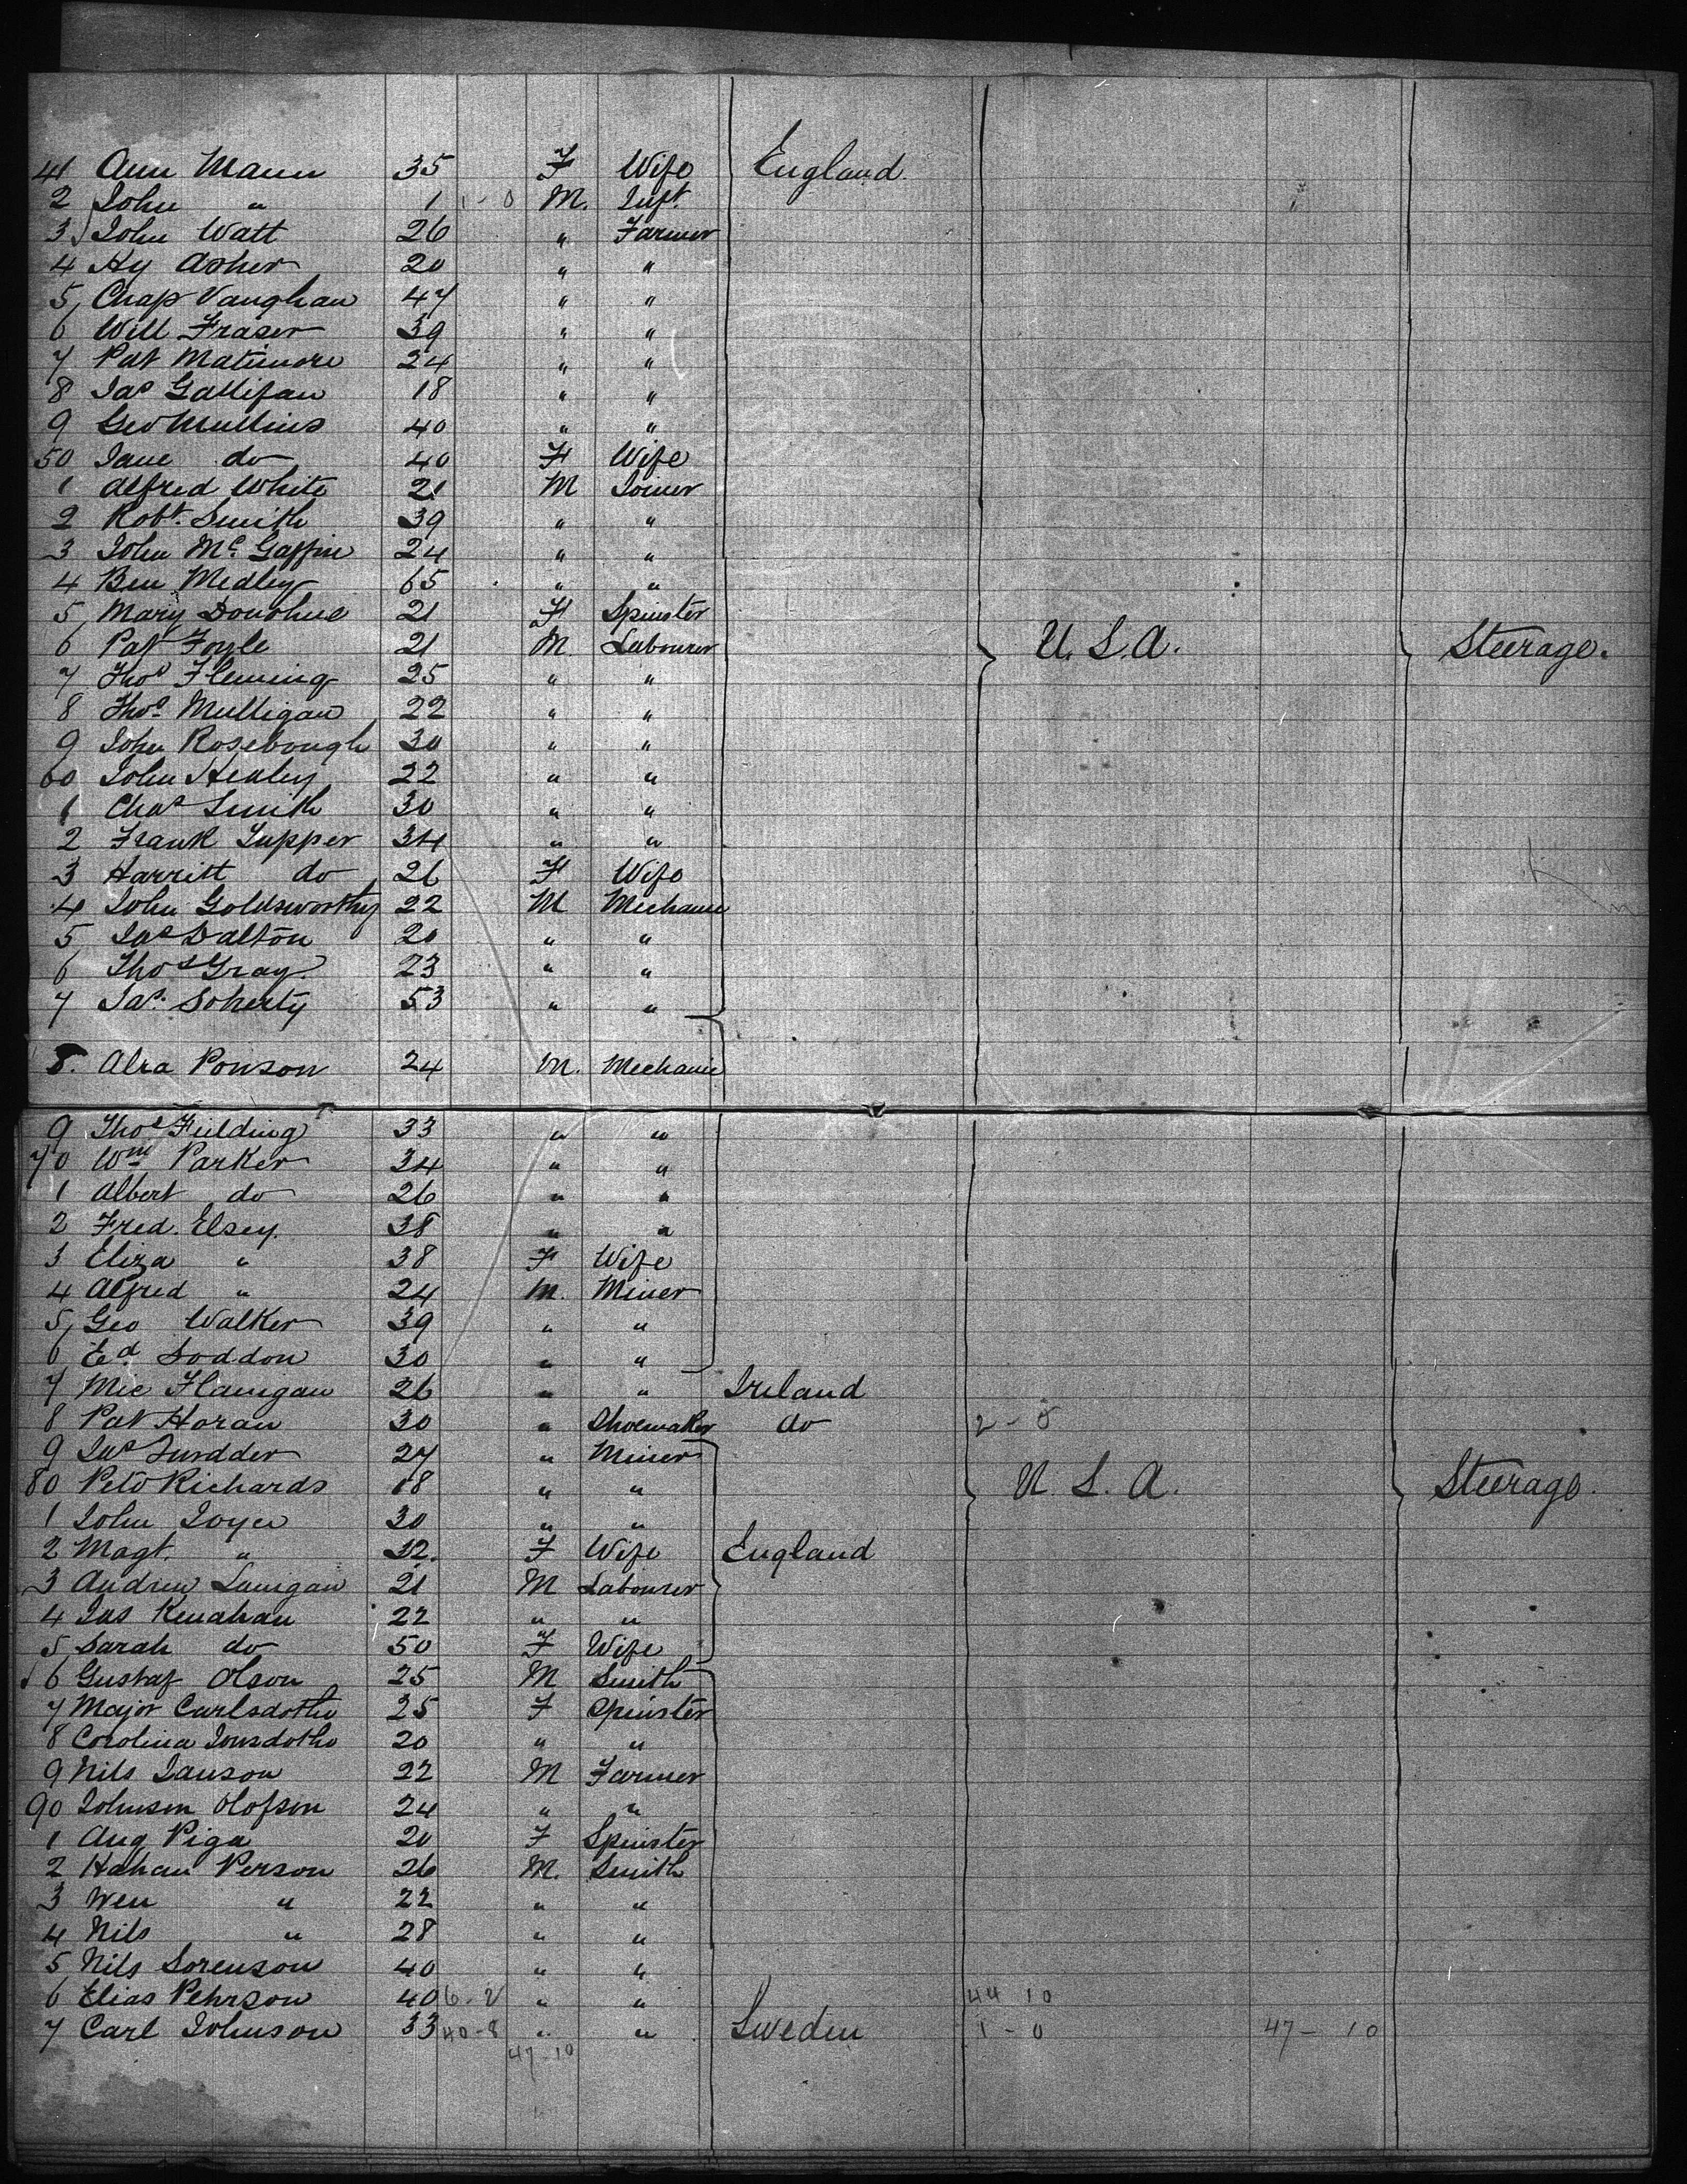 41 Ann Mann 35 F Wife England
2 John " 1 1-0 M. Inft.
3 John Watt 26 " Farmer
4 Hy Asher 20 " "
5 Chas Vaughan 47 " "
6 Will Fraser 39 " "
7 Pat Matimore 24 " "
8 Jas Gallifan 18 " "
9 Geo Mullins 40 " "
50 Jane do 40 F Wife
1 Alfred White 21 M Joiner
2 Robt. Smith 39 " "
3 John Mc. Gaffin 24 " "
4 Ben Medley 65 " "
5 Mary Donohue 21 F Spinster
6 Pat Foyle 21 M. Labourer U.S.A. Steerage.
7 Thos Fleming 25 " "
8 Thos Mulligan 22 " "
9 John Rosebough 30 " "
60 John Healey 22 " "
1 Chas Smith 30 " "
2 Frank Tupper 34 " "
3 Harritt do 26 F Wife
4 John Goldsworthy 22 M Mechanic
5 Jas Dalton 20 " "
6 Thos Gray 23 " "
7 Jas. Doherty 53 " "
8. Alra Ponson 24 M. Mechanic
9 Thos Fielding 33 " "
70 Wm Parker 34 " "
1 Albert do 26 " "
2 Fred. Elsey. 38 " "
3 Eliza " 38 F Wife
4 Alfred " 24 M. Miner
5 Geo Walker 39 " "
6 Ed Soddon 30 " "
7 Mic Flanigan 26 " " Ireland
8 Pat Horan 30 " Shoemaker do 2-0
9 Jas 27 " Miner
80 Peto Richards 18 " " U.S.A. Steerage.
1 John Joyce 30 " "
2 Magt. " 32. F Wife England
3 Andrew Lanigan 21 M Labourer
4 Jas Kenahan 22 " "
5 Sarah do 50 F Wife
6 Gustaf Olson 25 M Smith
7 Major Carlsdotho 25 F Spinster
8 Carolina Jonsdotho 20 " "
9 Nils Janson 22 M Farmer
90 Johnson Olofson 24 " "
1 Aug Piga 20 F Spinster
2 Hahan Person 26 M. Smith
3 Wen " 22 " "
4 Nils " 28 " "
5 Nils Sorenson 40 " "
6 Elias Pehrson 40 6-2 " " 44 10
7 Carl Johnson 33 40-8 " " Sweden 1-0 47-10
47-10